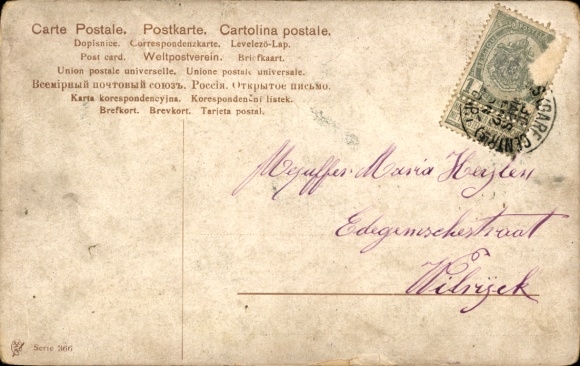 Carte Postale. Postkarte. Cartolina postale.
Dopisnice. Correspondenzkarte. Levelező-Lap.
Post card. Weltpostverein. Briefkaart.
Union postale universelle. Unione postale universale.
Всемірный почтовый союзъ. Россія. Открытое письмо.
Karta korespondencyjna. Korespondenční listek.
Brefkort. Brevkort. Tarjeta postal.
Mejuffer Maria Heylen
Edegemschestraat
Wilrijck
Serie 366